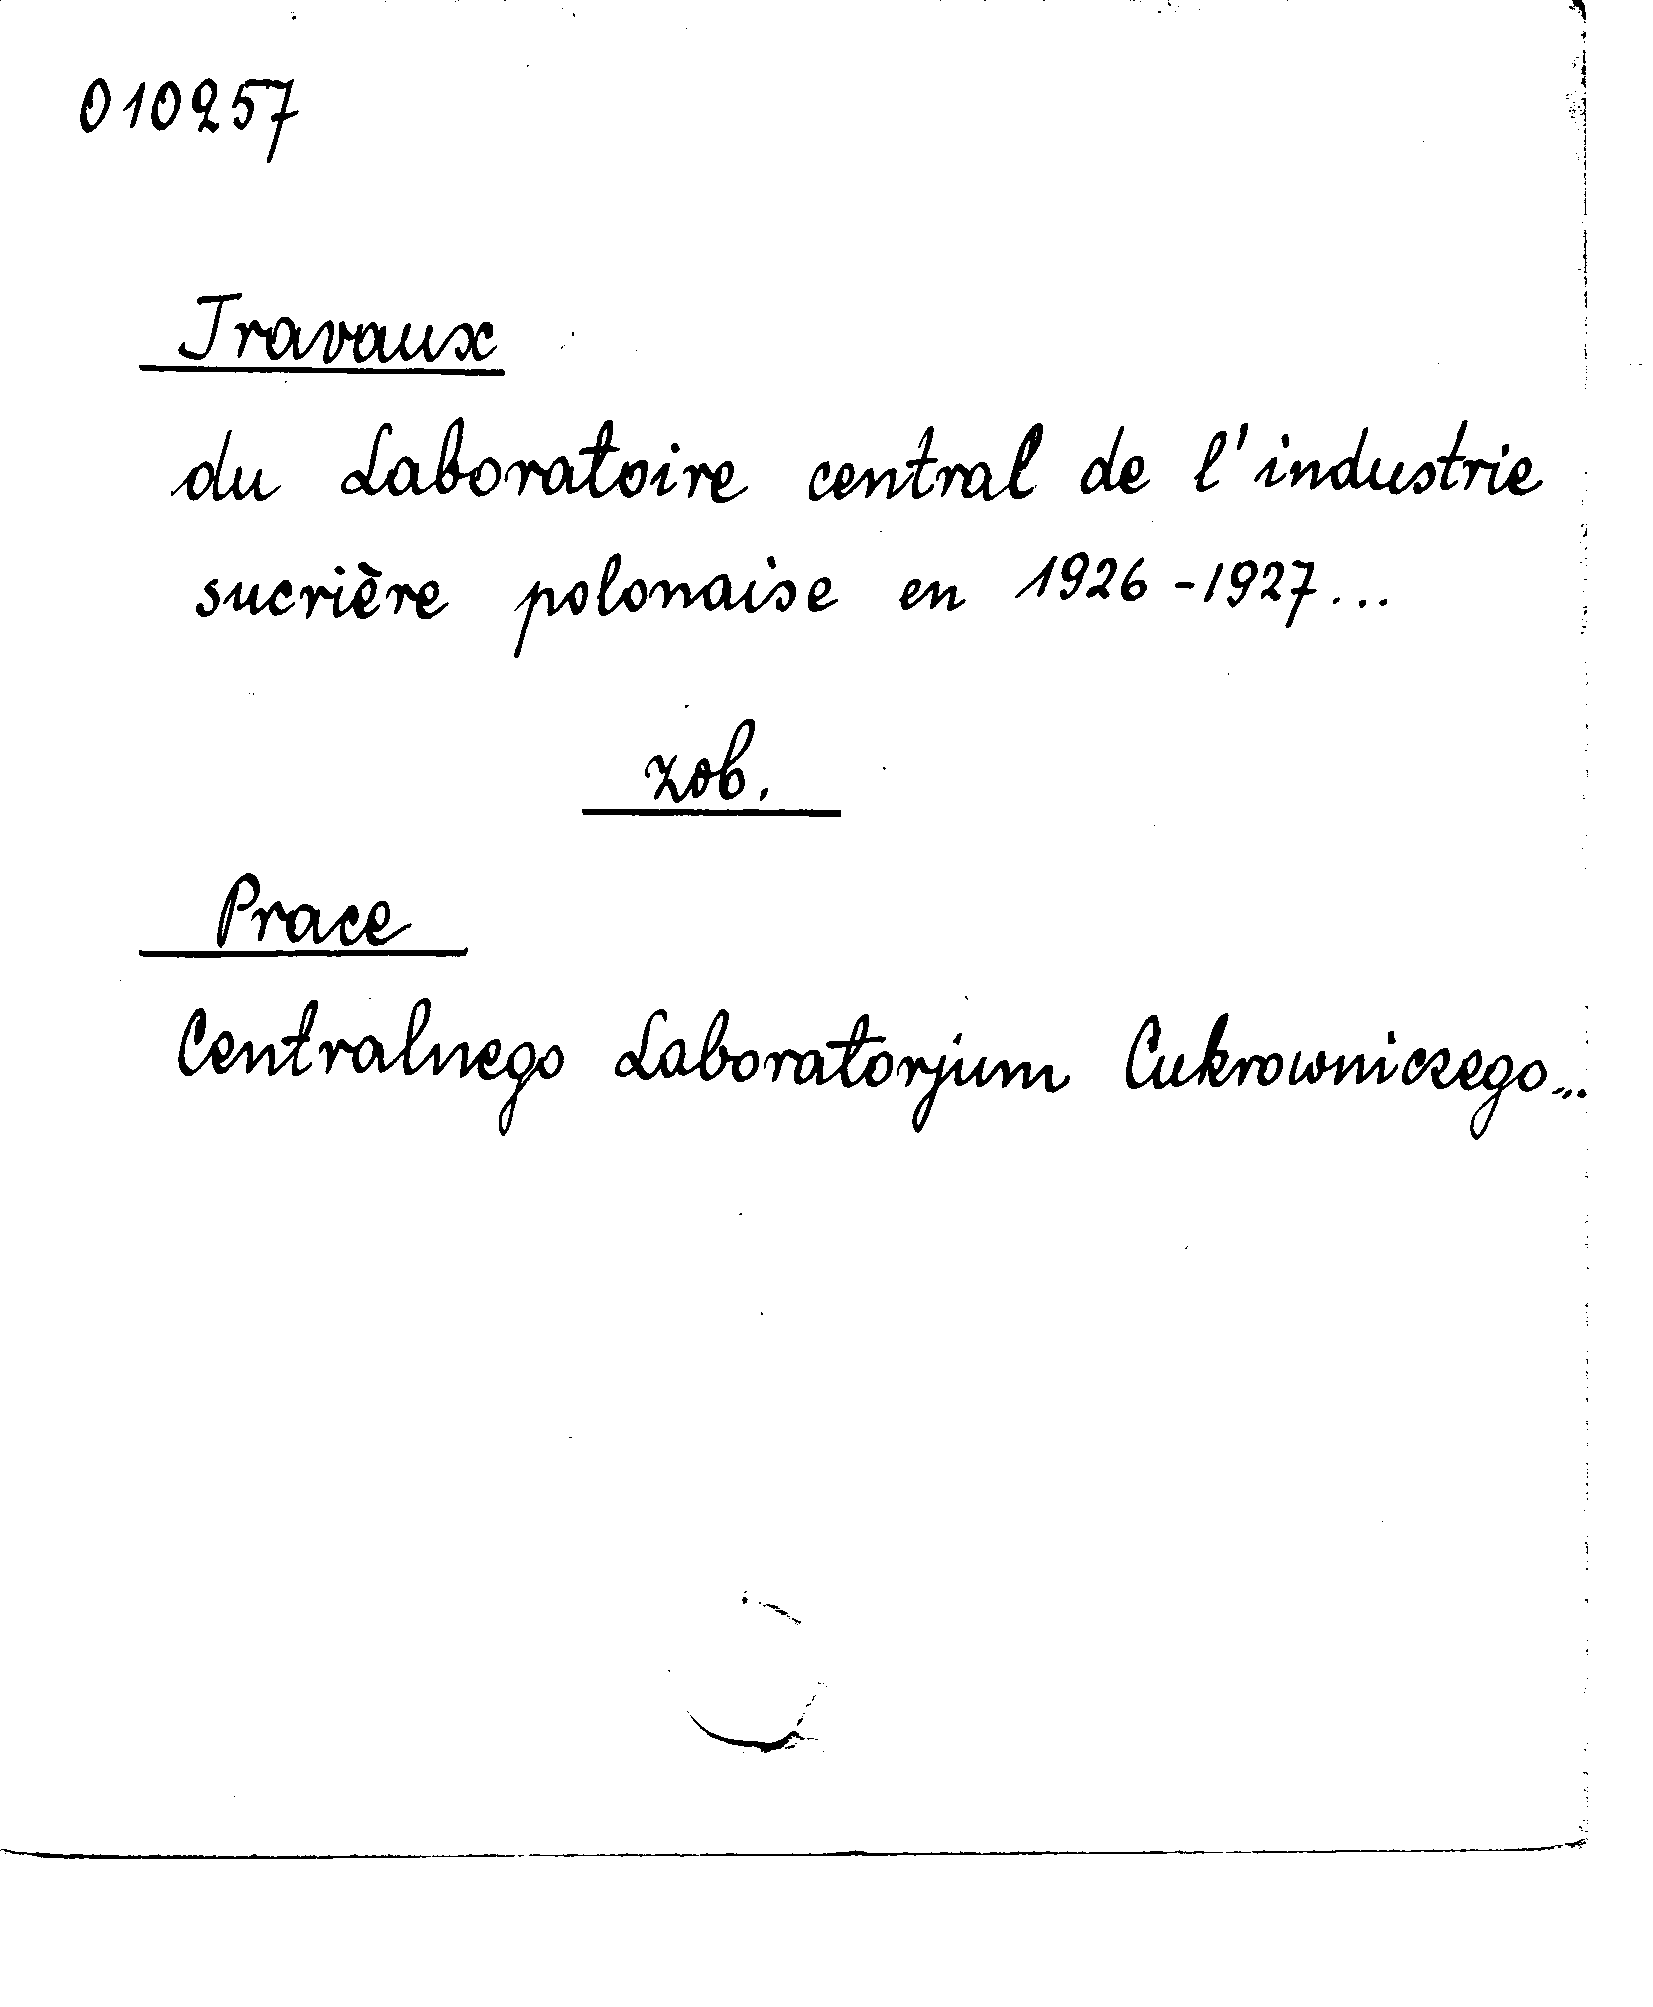 010257
Travaux
du Laboratoire central de l'industrie
sucrière polonaise en 1926-1927...
zob.
Prace
Centralnego Laboratorjum Cukrowniczego...